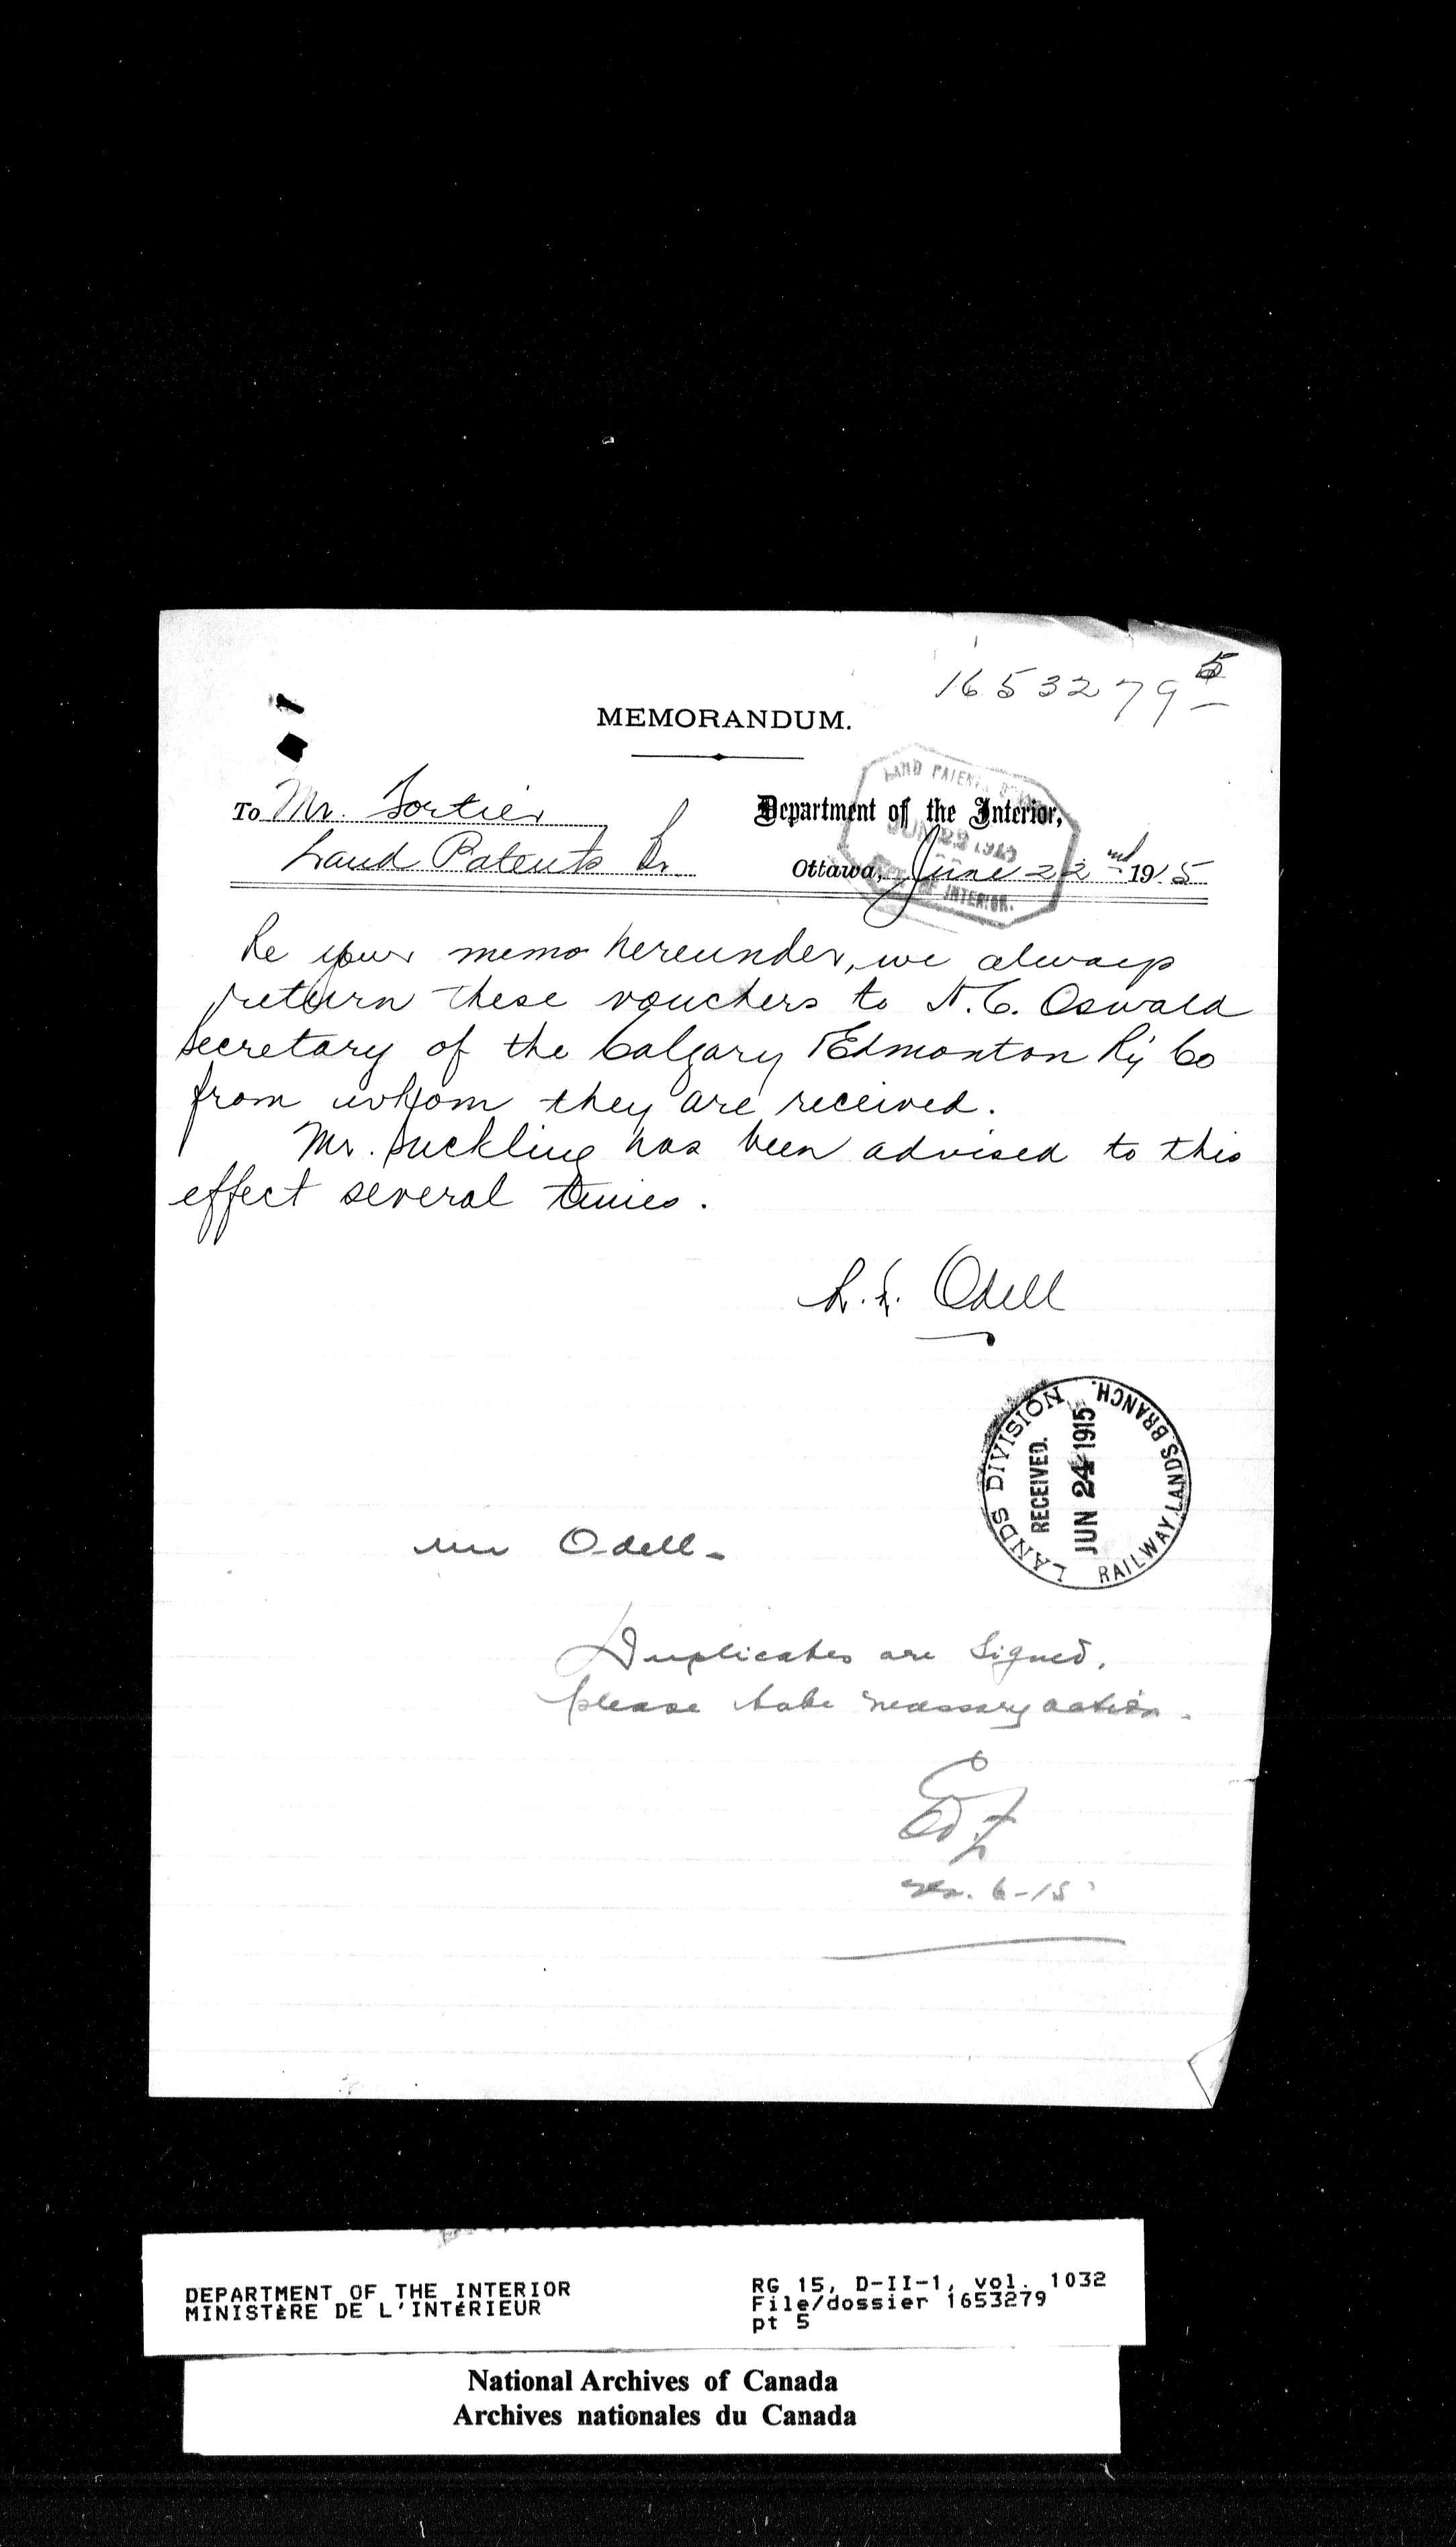 1653279 5
MEMORANDUM.
To Mr. Fortier
Land Patents Br.
Department of the Interior,
Ottawa, June 22nd 1915
LAND PATENTS
DEPT. OF INTERIOR.
Re your memo hereunder, we always
return these vouchers to H. C. Oswald
Secretary of the Calgary & Edmonton Ry Co
from whom they are received.
Mr. Suckling has been advised to this
effect several times.
Odell
LANDS DIVISION
RECEIVED.
JUN 24 1915
RAILWAY LANDS BRANCH.
Mr Odell-
Duplicates are signed.
please take necessary action.
6-15
DEPARTMENT OF THE INTERIOR
MINISTÈRE DE L'INTÉRIEUR
RG 15, D-II-1, vol. 1032
File/dossier 1653279
pt 5
National Archives of Canada
Archives nationales du Canada